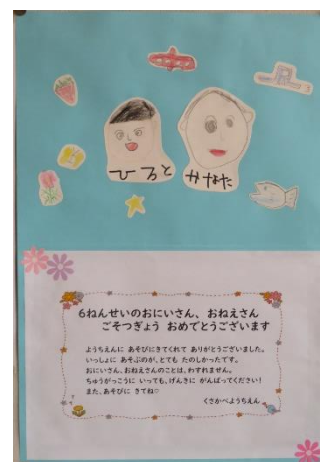 ひろと
かなた
6ねんせいのおにいさん、おねえさん
ごそつぎょう おめでとうございます
ようちえんに あそびにきてくれて ありがとうございました。
いっしょに あそぶのが、とても たのしかったです。
おにいさん、おねえさんのことは、わすれません。
ちゅうがっこうに いっても、げんきに がんばってください！
また、あそびに きてね♡
くさかべようちえん